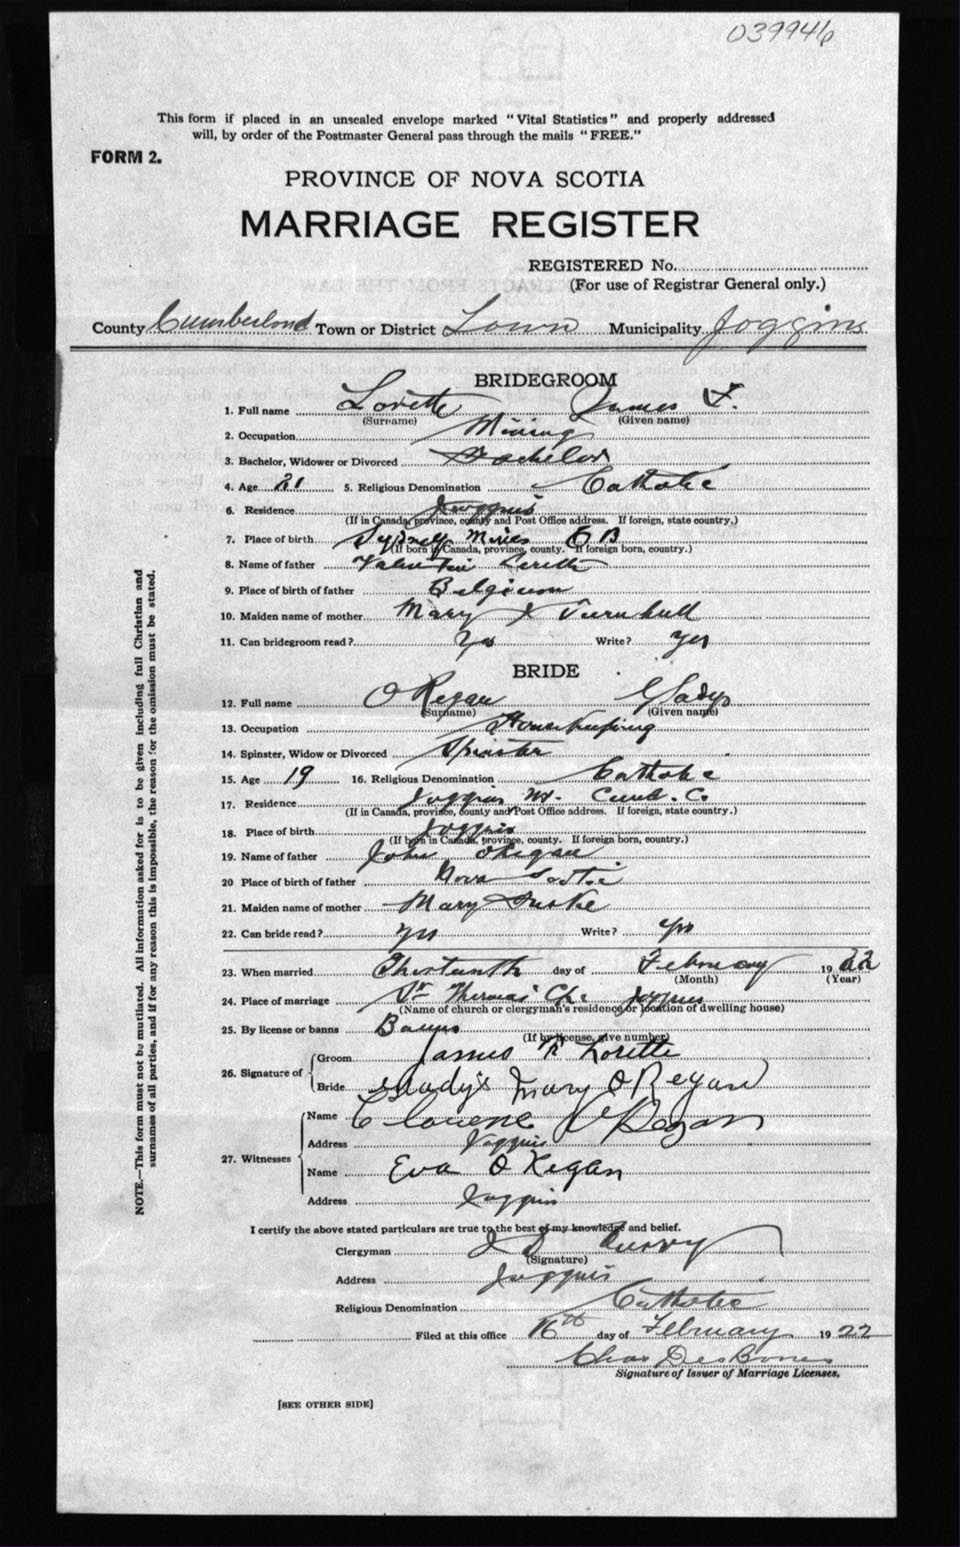 039946
This form if placed in an unsealed envelope marked "Vital Statistics" and properly addressed
will, by order of the Postmaster General pass through the mails "FREE."
FORM 2.
PROVINCE OF NOVA SCOTIA
MARRIAGE REGISTER
REGISTERED No.
(For use of Registrar General only.)
County Cumberland Town or District Town Municipality Joggins
BRIDEGROOM
1. Full name Lorette James F.
(Surname) (Given name)
2. Occupation Mining
3. Bachelor, Widower or Divorced Bachelor
4. Age 21 5. Religious Denomination Catholic
6. Residence Joggins
(If in Canada, province, county and Post Office address. If foreign, state country.)
7. Place of birth Sydney Mines C B
(If born in Canada, province, county. If foreign born, country.)
8. Name of father Valentin Lorette
9. Place of birth of father Belgium
10. Maiden name of mother Mary Turnbull
11. Can bridegroom read? Yes Write? Yes
BRIDE
12. Full name O Regan Gladys
(Surname) (Given name)
13. Occupation Housekeeping
14. Spinster, Widow or Divorced Spinster
15. Age 19 16. Religious Denomination Catholic
17. Residence Joggins Cumb. Co.
(If in Canada, province, county and Post Office address. If foreign, state country.)
18. Place of birth Joggins
(If born in Canada, province, county. If foreign born, country.)
19. Name of father John ORegan
20 Place of birth of father Nova Scotia
21. Maiden name of mother Mary
22. Can bride read? Yes Write? Yes
23. When married Thirteenth day of February 1922
(Month) (Year)
24. Place of marriage St Thomas' Joggins
(Name of church or clergyman's residence or location of dwelling house)
25. By license or banns Banns
(If by license, give number)
26. Signature of Groom James F. Lorette
Bride Gladys Mary O Regan
27. Witnesses Name Clarence O Regan
Address Joggins
Name Eva O Regan
Address Joggins
I certify the above stated particulars are true to the best of my knowledge and belief.
Clergyman
(Signature)
Address Joggins
Religious Denomination Catholic
Filed at this office 16th day of February 1922
Chas
Signature of Issuer of Marriage Licenses.
[SEE OTHER SIDE]
NOTE.—This form must not be mutilated. All information asked for is to be given including full Christian and
surnames of all parties, and if for any reason this is impossible, the reason for the omission must be stated.